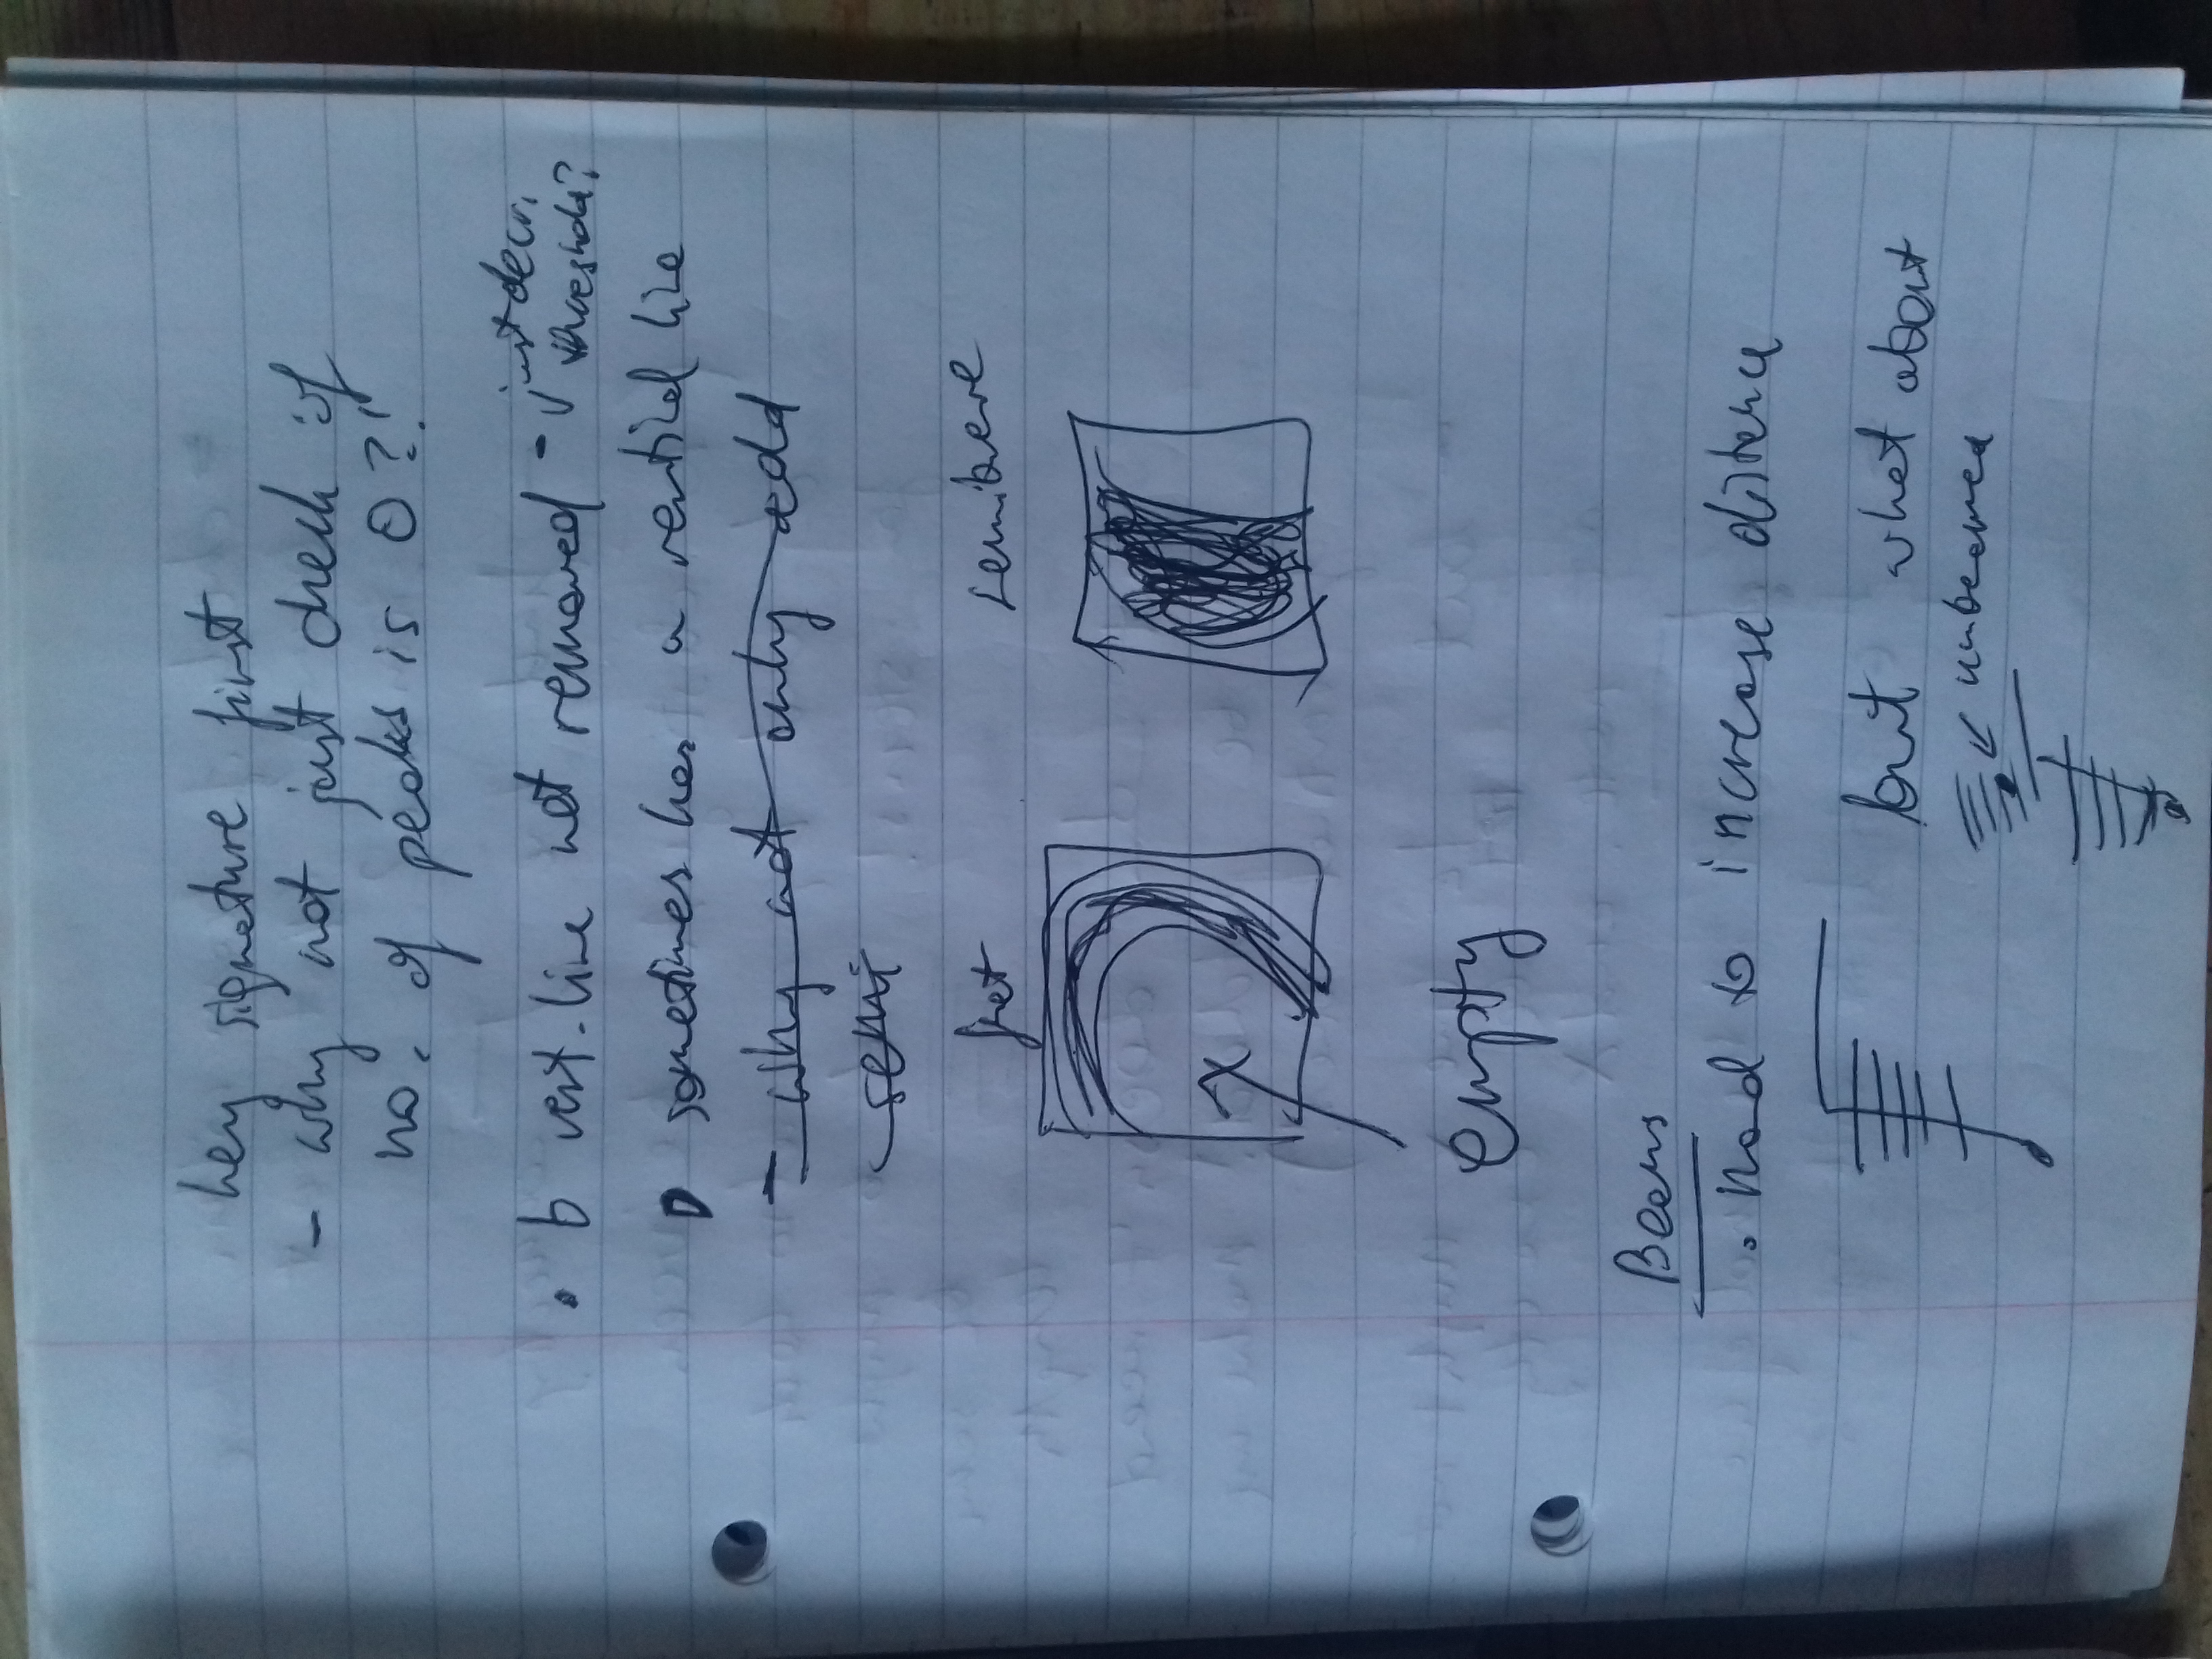 key signature first
- why not just check if
no. of peaks is 0?!
• b vert. line not removed - just decr.
threshold?
sometimes has a vertical line
- why not only add
semi
flat
semibreve
empty
Beams
• had to increase distance
but what about
unbeamed